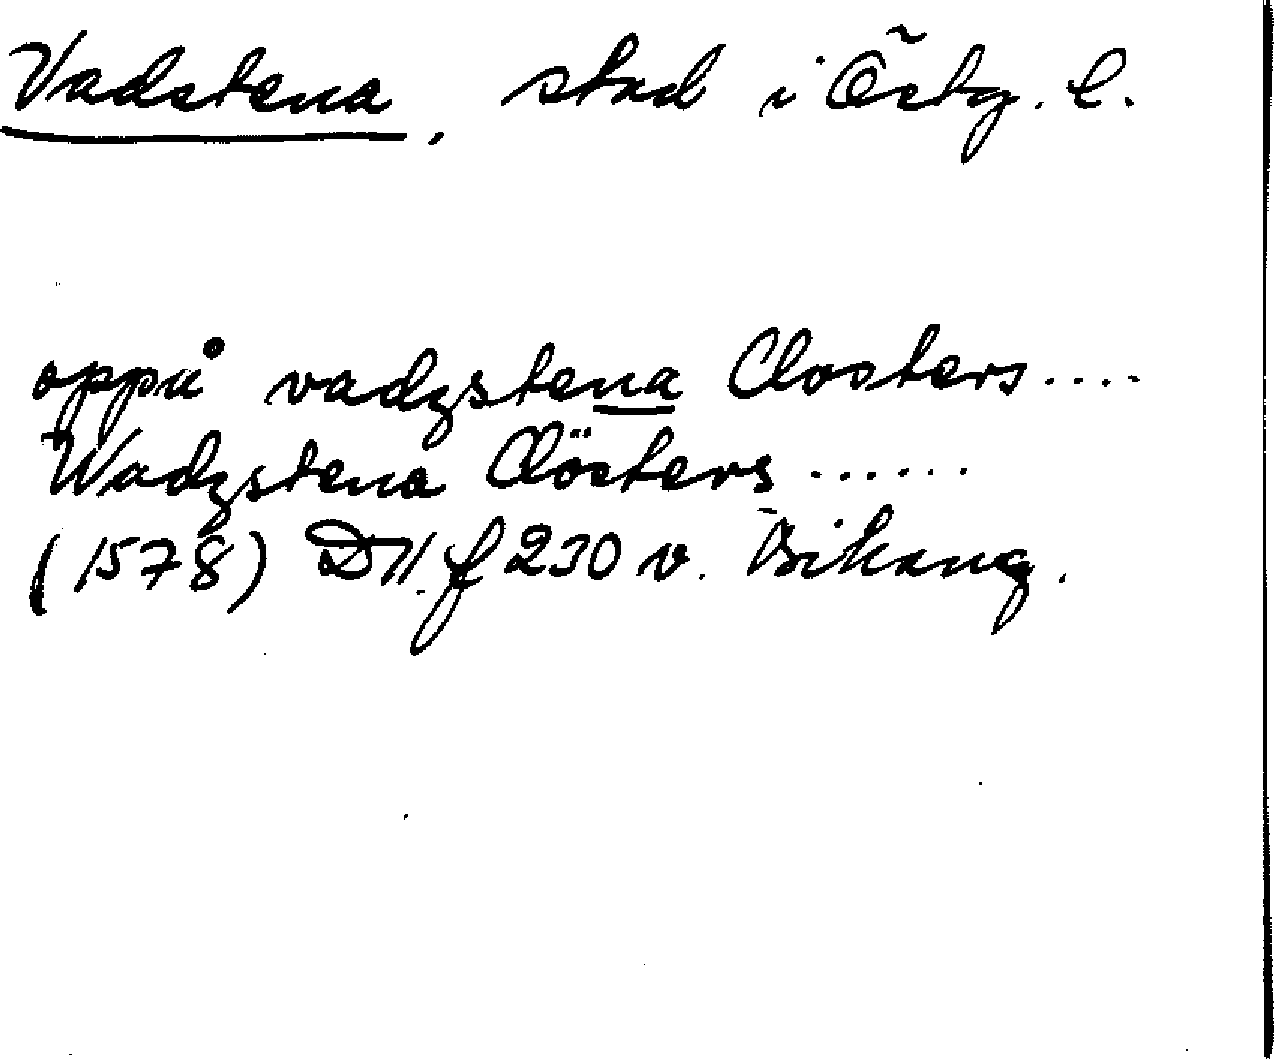 Vadstena, stad i Östg. l.
oppå vadzstena Closters....
Wadzstena Clösters ......
(1578) D11. f 230 v. Bihang.